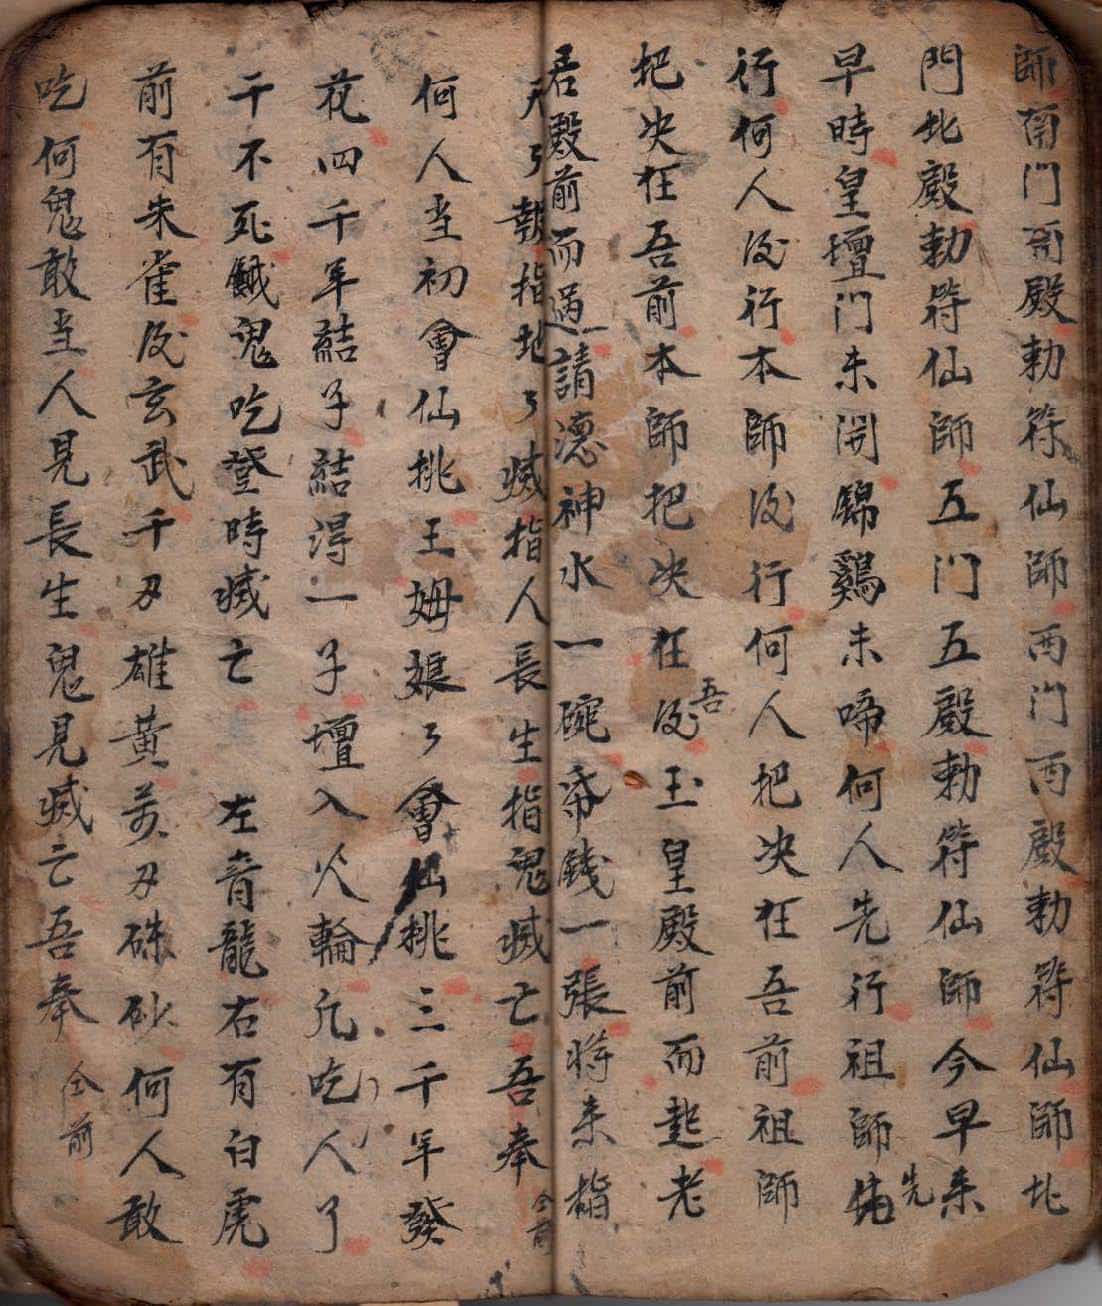 師南門南殿勅符仙師西门西殿勅符仙師北
門北殿勅符仙師五门五殿勅符仙師今早來
早時皇壇门未開錦鷄未啼何人先行祖師先
行何人後行本師後行何人把决在吾前祖師
把决在吾前本師把决在吾後玉皇殿前而起老
君殿前而過一請德神水一碗帋錢一張将来指
天々報指地々滅指人長生指鬼滅亡吾奉 仝前
何人至初會仙挑王姆娘々會仙挑三千年發
花四千年結子結得一子壇入火輪凣吃人了
千不死餓鬼吃登時滅亡 左青龍右有白虎
前有朱雀後玄武千刄雄黃万刄硃砂何人敢
吃何鬼敢至人見長生鬼見滅亡吾奉 仝前